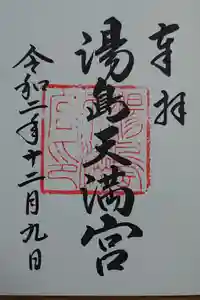 奉拝
湯島天満宮
令和二年十二月九日